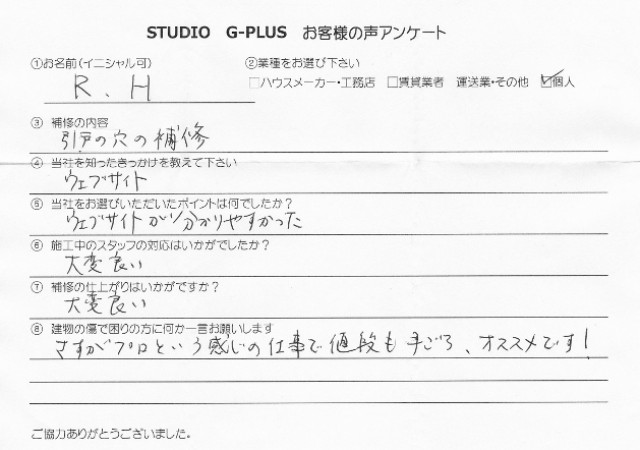 STUDIO G-PLUS お客様の声アンケート
①お名前(イニシャル可) ②業種をお選び下さい
R. H □ハウスメーカー・工務店 □賃貸業者 運送業・その他 ☑個人
③ 補修の内容
引戸の穴の補修
④ 当社を知ったきっかけを教えて下さい
ウェブサイト
⑤ 当社をお選びいただいたポイントは何でしたか?
ウェブサイトが分かりやすかった
⑥ 施工中のスタッフの対応はいかがでしたか?
大変良い
⑦ 補修の仕上がりはいかがですか?
大変良い
⑧ 建物の傷で困りの方に何か一言お願いします
さすがプロという感じの仕事で値段も手ごろ、オススメです!
ご協力ありがとうございました。